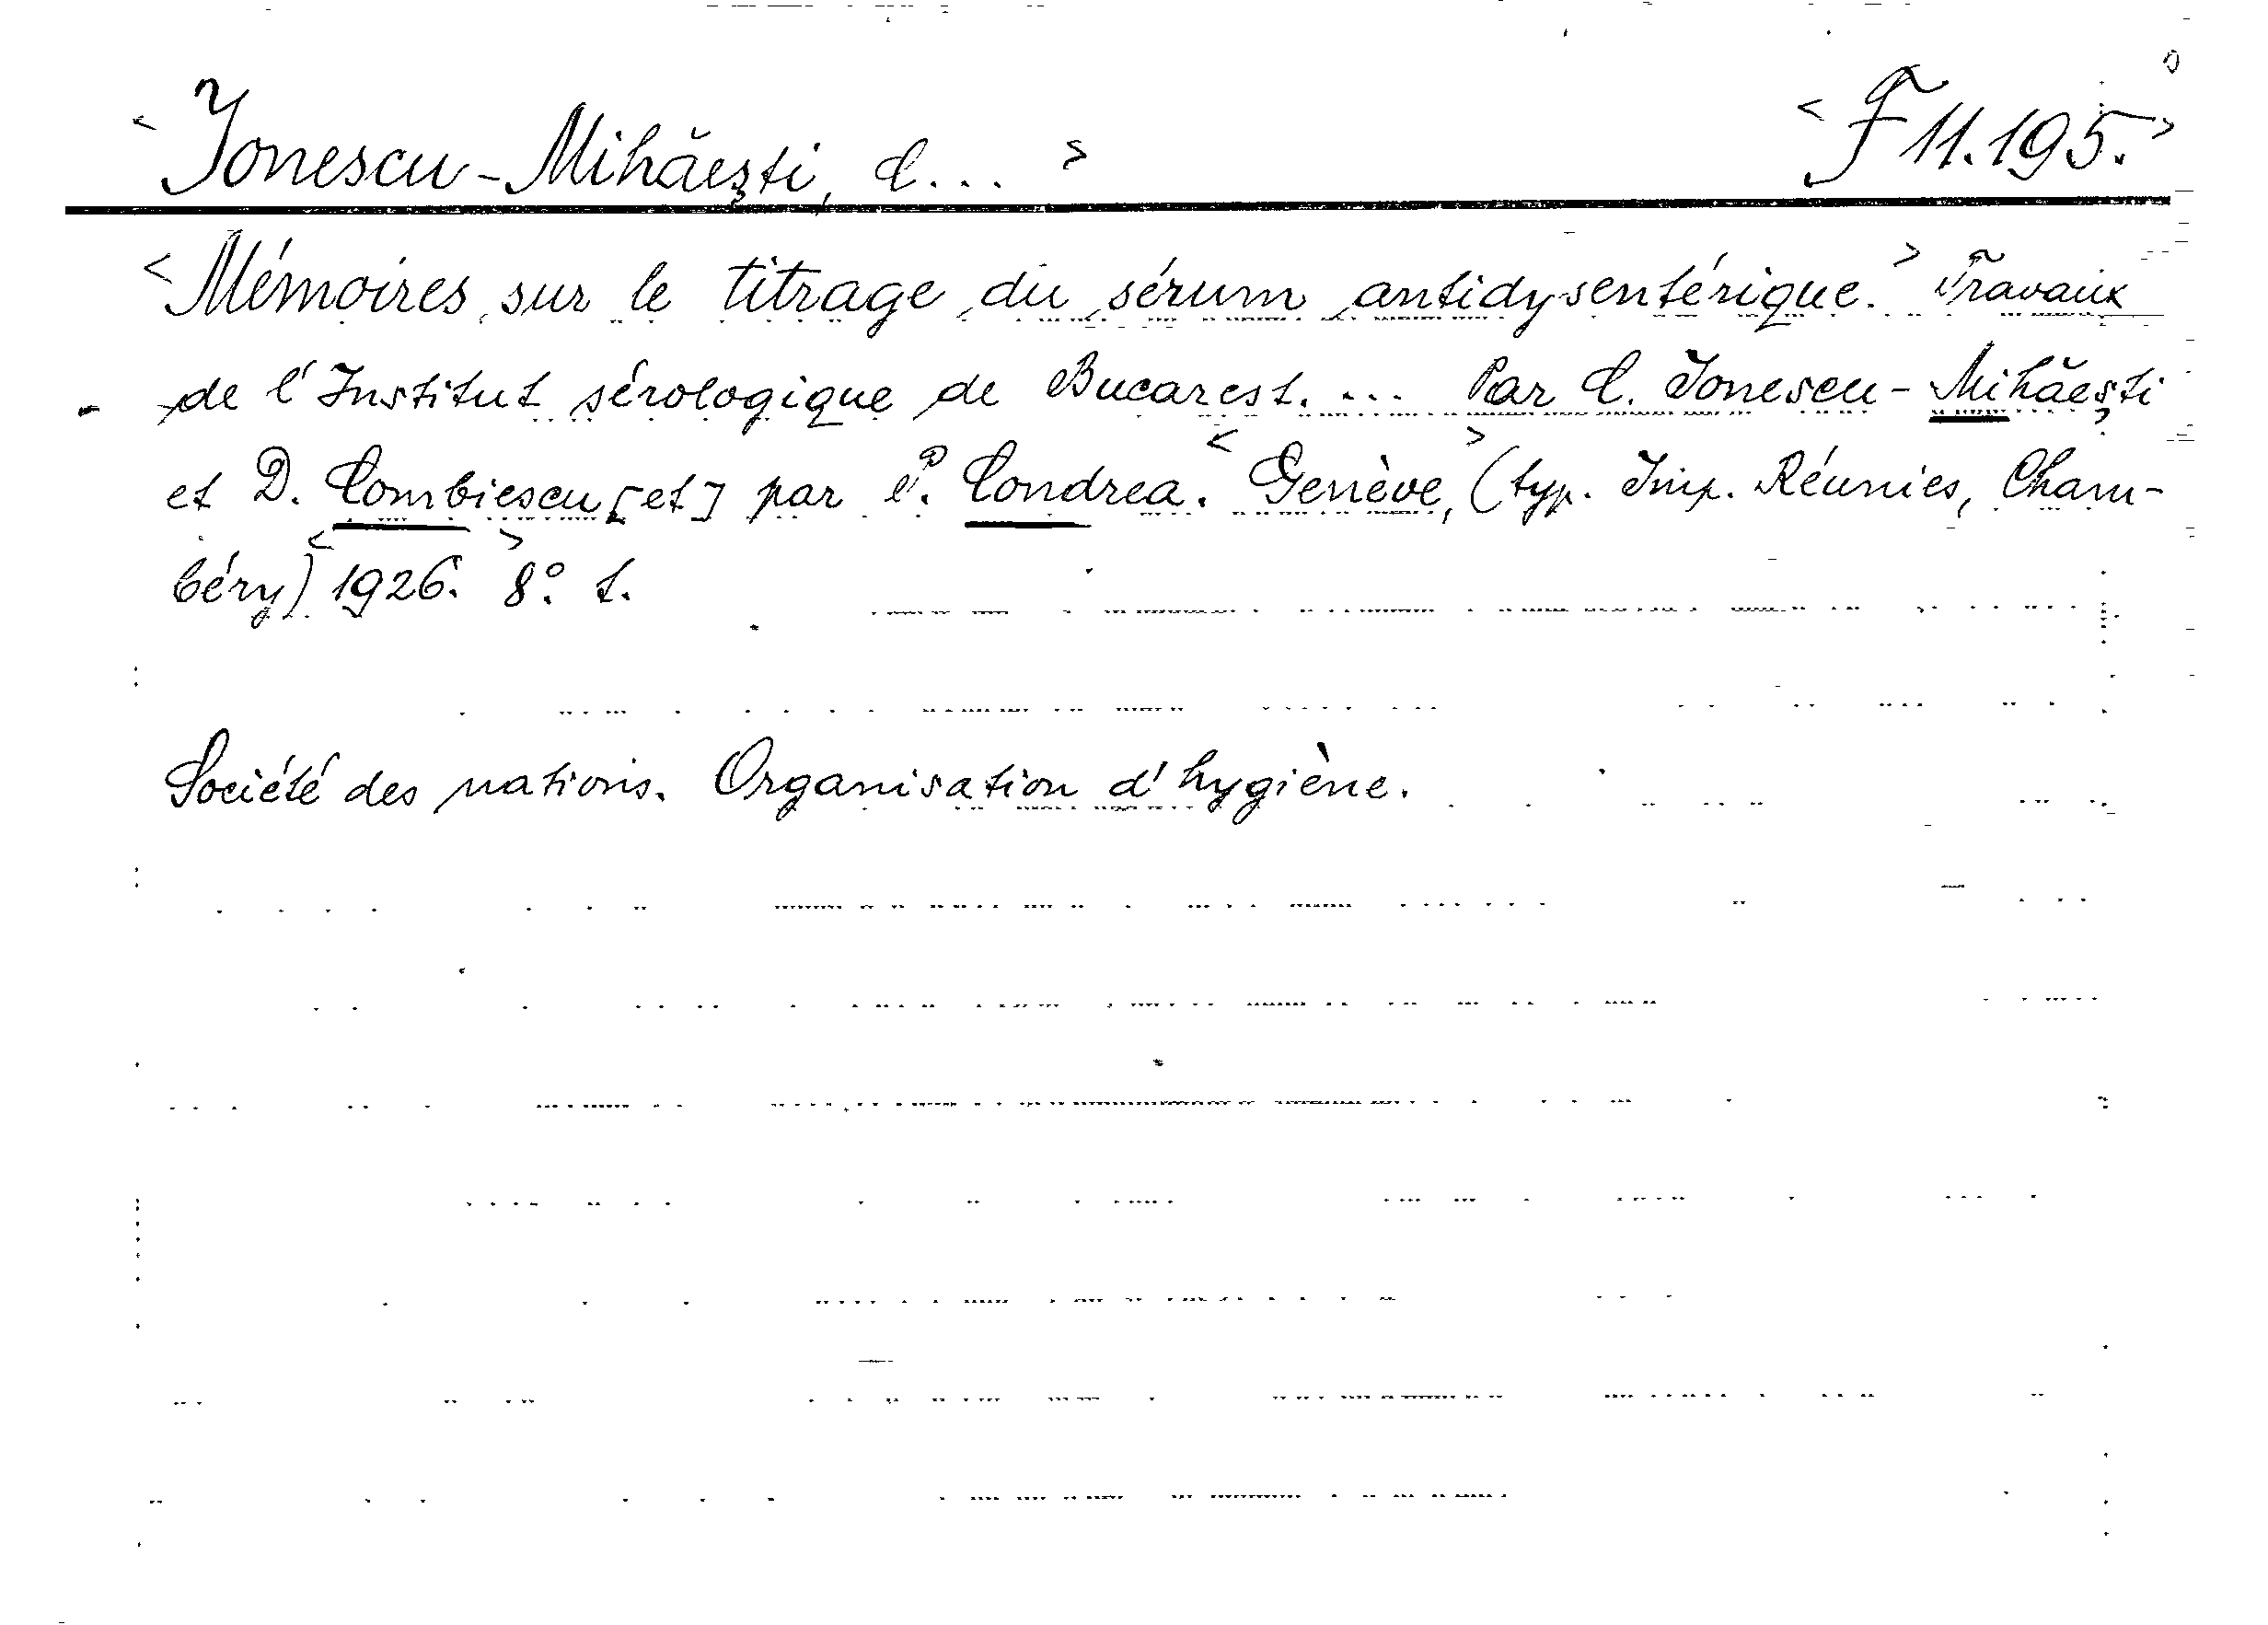 <Ionescu-Mihăeşti, C... > <F 11.195.>
<Mémoires sur le titrage du sérum antidysentérique.> Travaux
de l'Institut sérologique de Bucarest. ... Par C. Ionescu-Mihăeşti
et D. Combiescu [et] par P. Condrea. <Genève,> (typ. Imp. Réunies, Cham-
béry) <1926.> 8°. t.
Société des nations. Organisation d'hygiène.